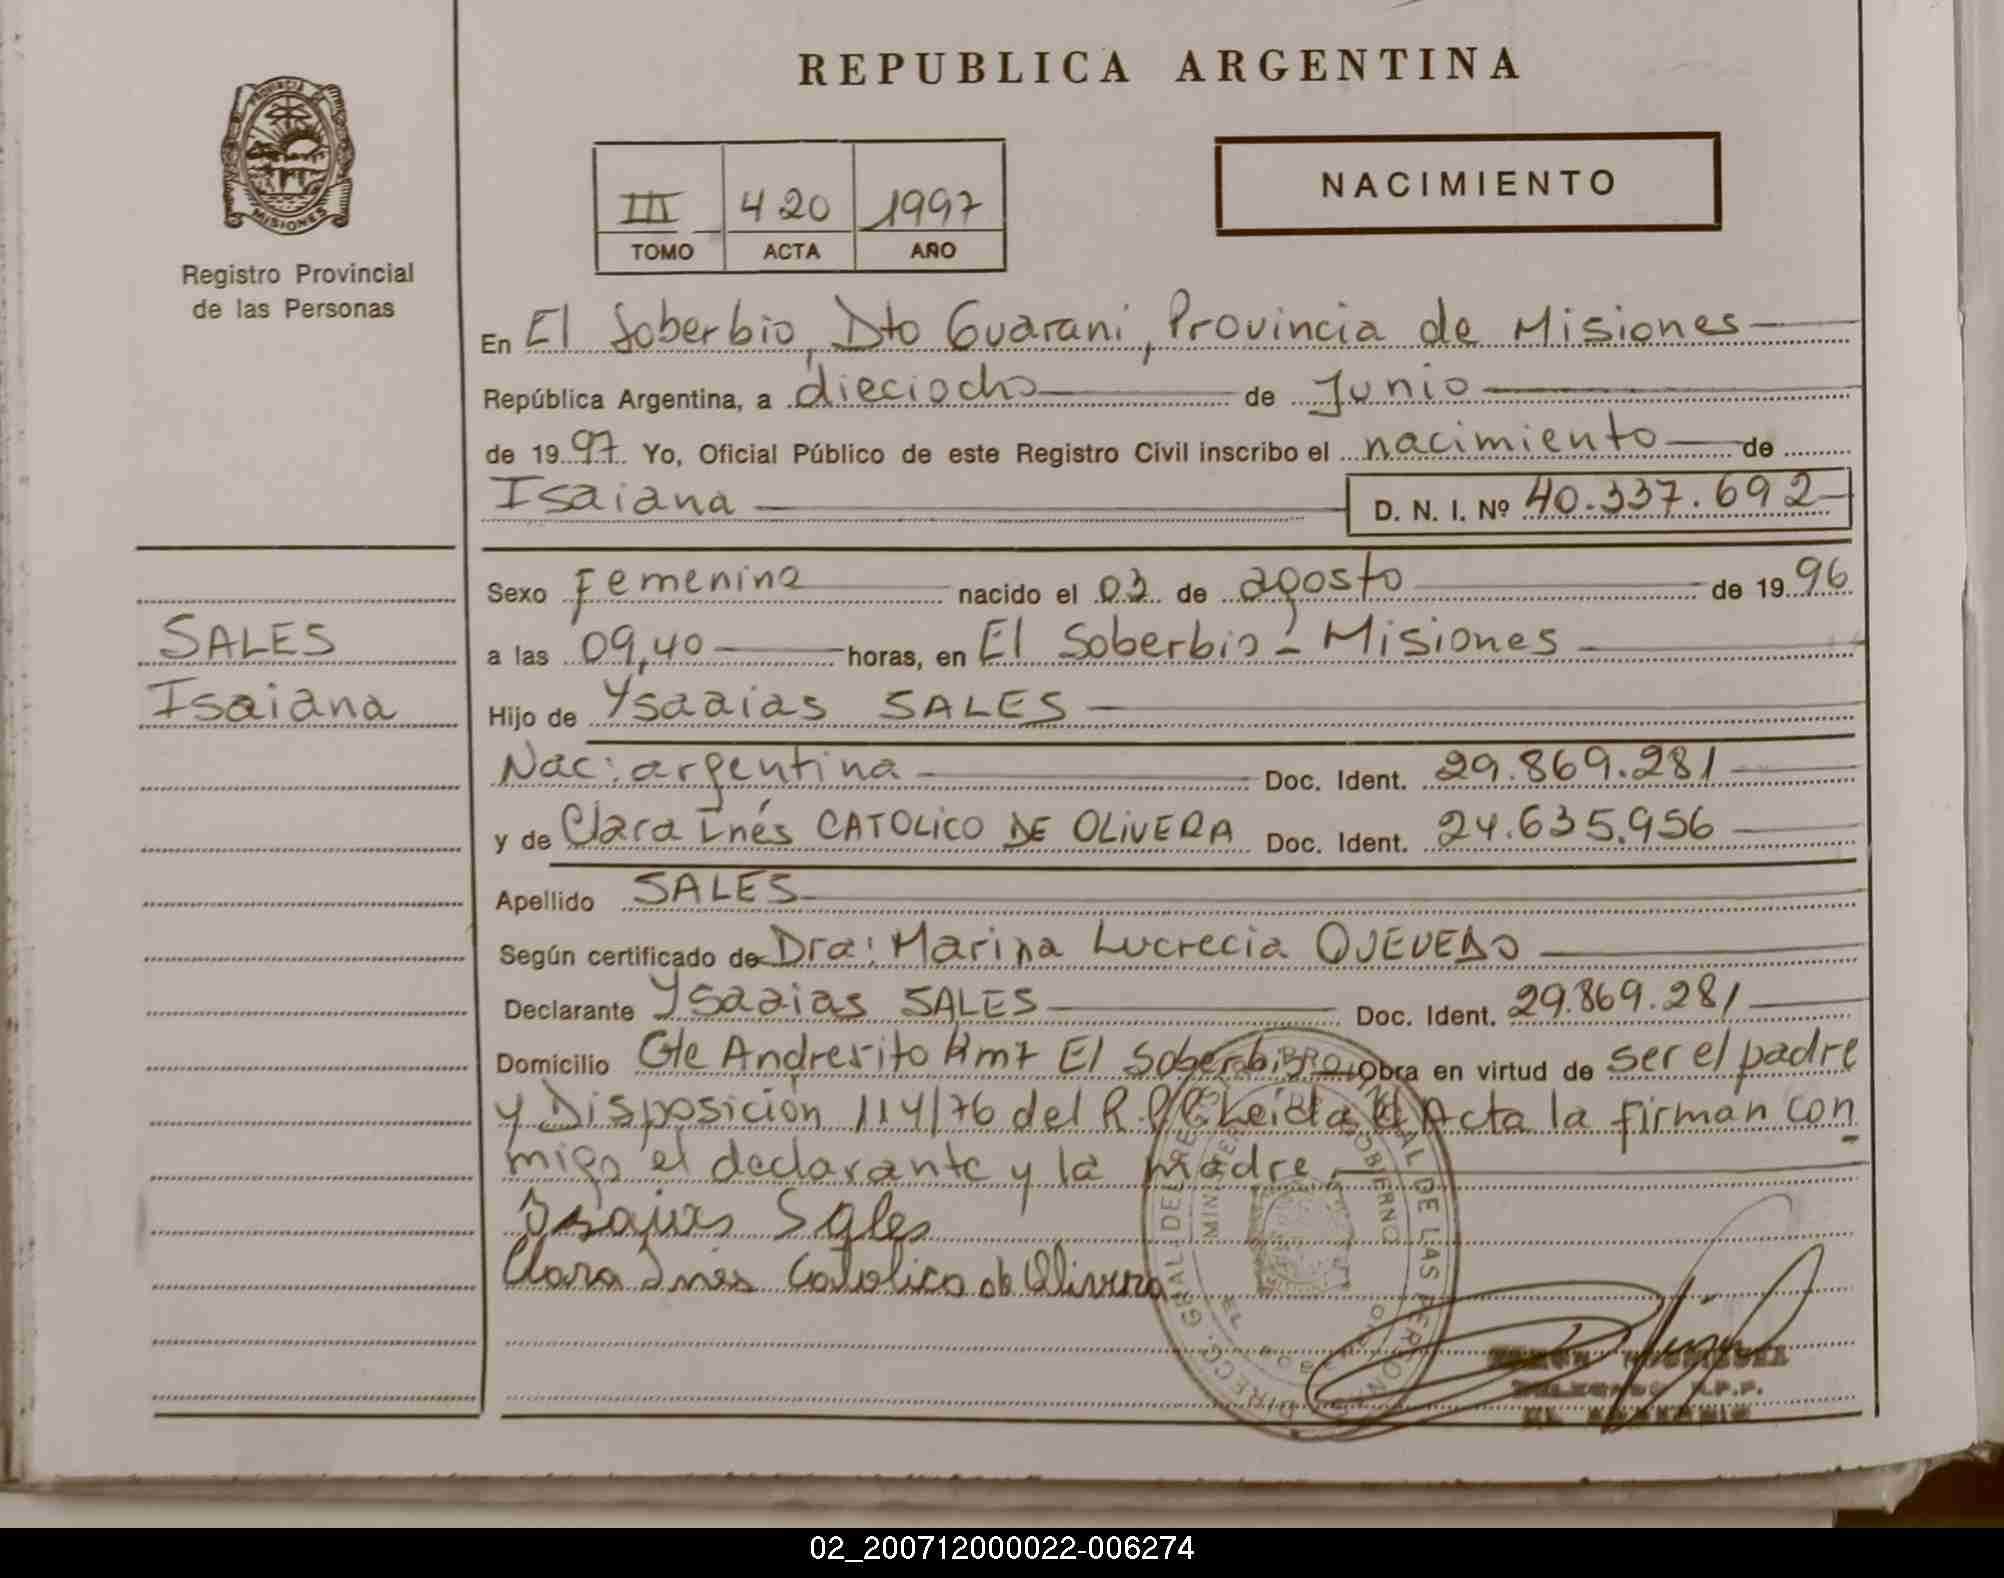 REPUBLICA ARGENTINA
PROVINCIA DE
MISIONES
Registro Provincial
de las Personas
III 420 1997
TOMO ACTA AÑO
NACIMIENTO
En El Soberbio, Dto Guarani, Provincia de Misiones
República Argentina, a dieciocho de Junio
de 1997 Yo, Oficial Público de este Registro Civil inscribo el nacimiento de
Isaiana D. N. I. Nº 40.337.692
SALES
Isaiana
Sexo Femenino nacido el 03 de agosto de 1996
a las 09,40 horas, en El Soberbio - Misiones
Hijo de Ysaaias SALES
Nac: argentina Doc. Ident. 29.869.281
y de Clara Inés CATOLICO DE OLIVERA Doc. Ident. 24.635.956
Apellido SALES
Según certificado de Dra: Marina Lucrecia QUEVEDO
Declarante Ysaaias SALES Doc. Ident. 29.869.281
Domicilio Cte Andresito Km7 El Soberbio Obra en virtud de ser el padre
y Disposición 114/76 del R.P. Leida el Acta la firman con
migo el declarante y la madre
Isaias Sales
Clara Ines Catolico de Olivera
EL SOBERBIO
02_200712000022-006274